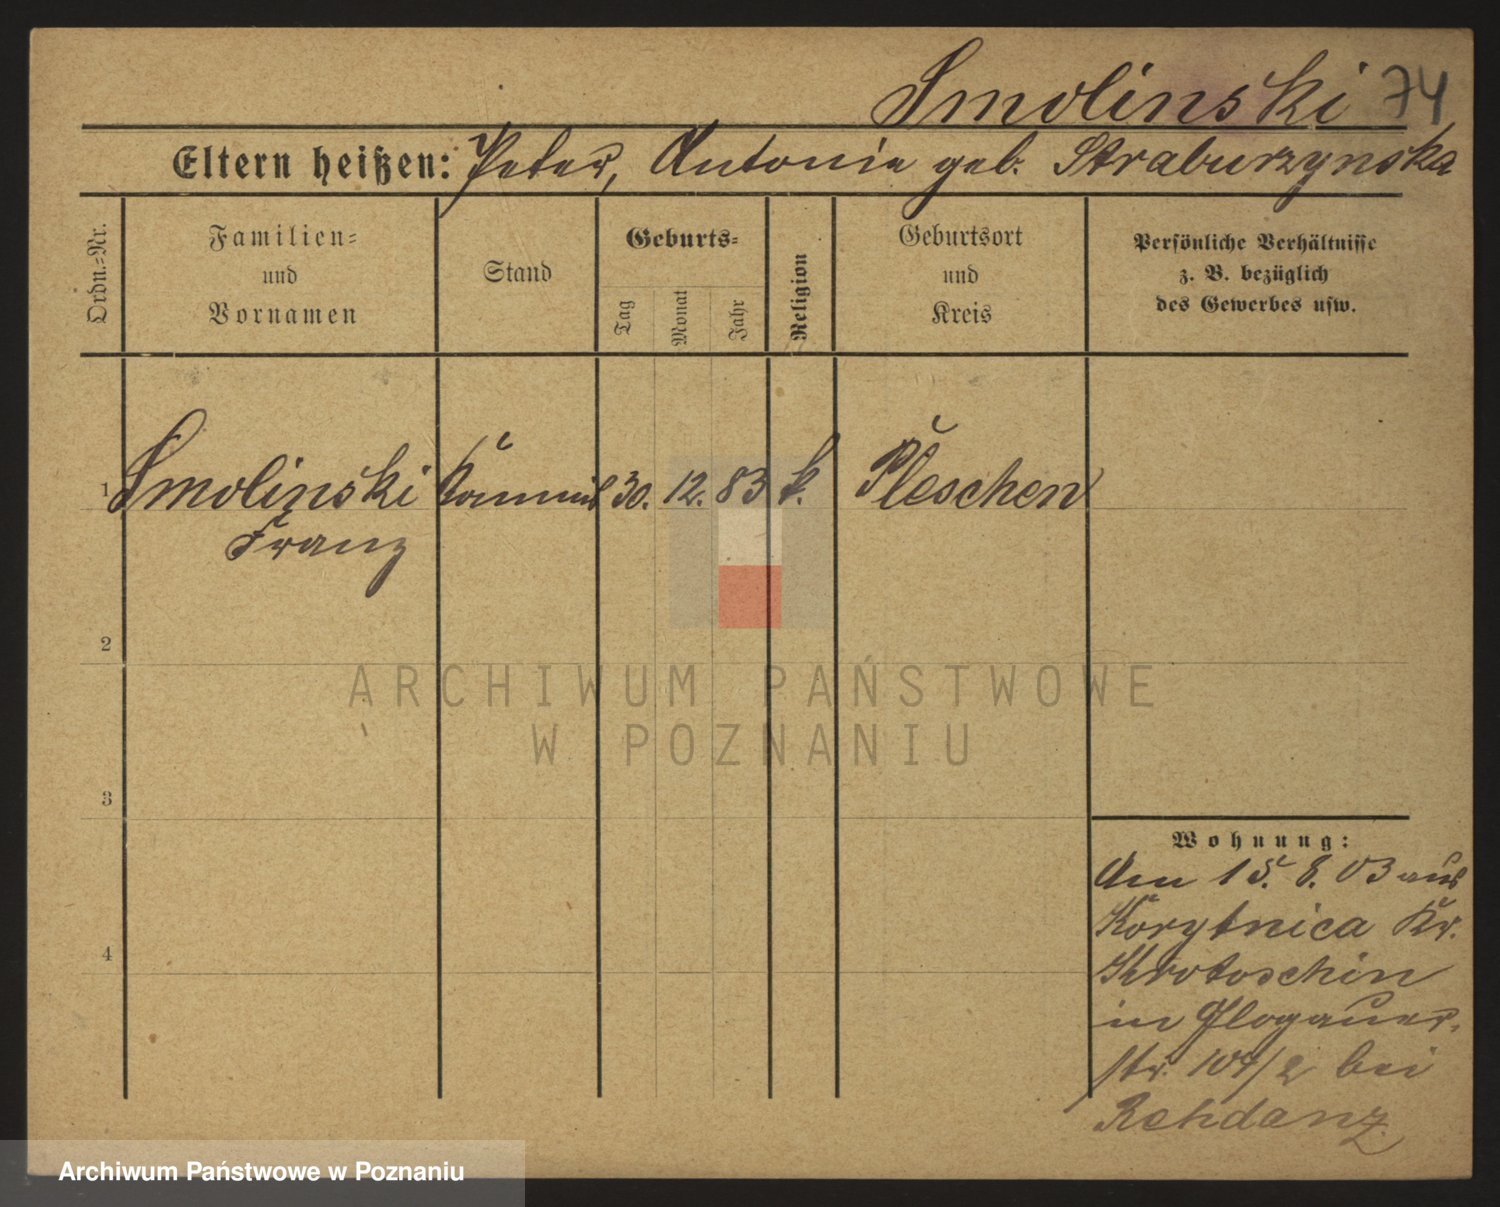 Smolinski 74
Eltern heißen: Peter, Antonie geb. Straburzynska
Ordn.=Nr.
Familien=
und
Vornamen
Stand
Geburts=
Tag
Monat
Jahr
Religion
Geburtsort
und
Kreis
Persönliche Verhältnisse
z. B. bezüglich
des Gewerbes usw.
1 Smolinski 30. 12. 83 k. Pleschen
Franz
2
3
4
Wohnung:
Am 15. 8. 03 aus
Korytnica Kr.
Krotoschin
in Glogauer
str. 104/2 bei
Rehdanz.
ARCHIWUM PAŃSTWOWE
W POZNANIU
Archiwum Państwowe w Poznaniu